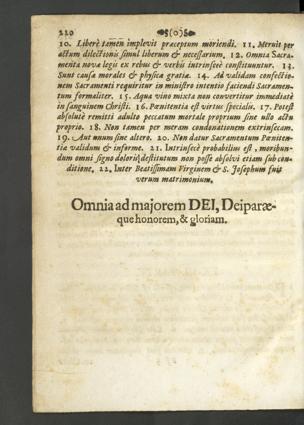 220 (0)
10. Liberè tamen implevit præceptum moriendi. 11. Meruit per
actum dilectionis simul liberum & necessarium. 12. Omnia Sacra-
menta novæ legis ex rebus & verbis intrinsecè constituuntur. 13.
Sunt causæ morales & physicæ gratiæ. 14. Ad validam confectio-
nem Sacramenti requiritur in ministro intentio faciendi Sacramen-
tum formaliter. 15. Aqua vino mixta non convertitur immediatè
in sanguinem Christi. 16. Pœnitentia est virtus specialis. 17. Potest
absolutè remitti adulto peccatum mortale proprium sine ullo actu
proprio. 18. Non tamen per meram condonationem extrinsecam.
19. Aut unum sine altero. 20. Non datur Sacramentum Pœniten-
tiæ validum & informe. 21. Intrinsecè probabilius est, moribun-
dum omni signo doloris destitutum non posse absolvi etiam sub con-
ditione. 22. Inter Beatissimam Virginem & S. Josephum fuit
verum matrimonium.
Omnia ad majorem DEI, Deiparæ-
que honorem, & gloriam.